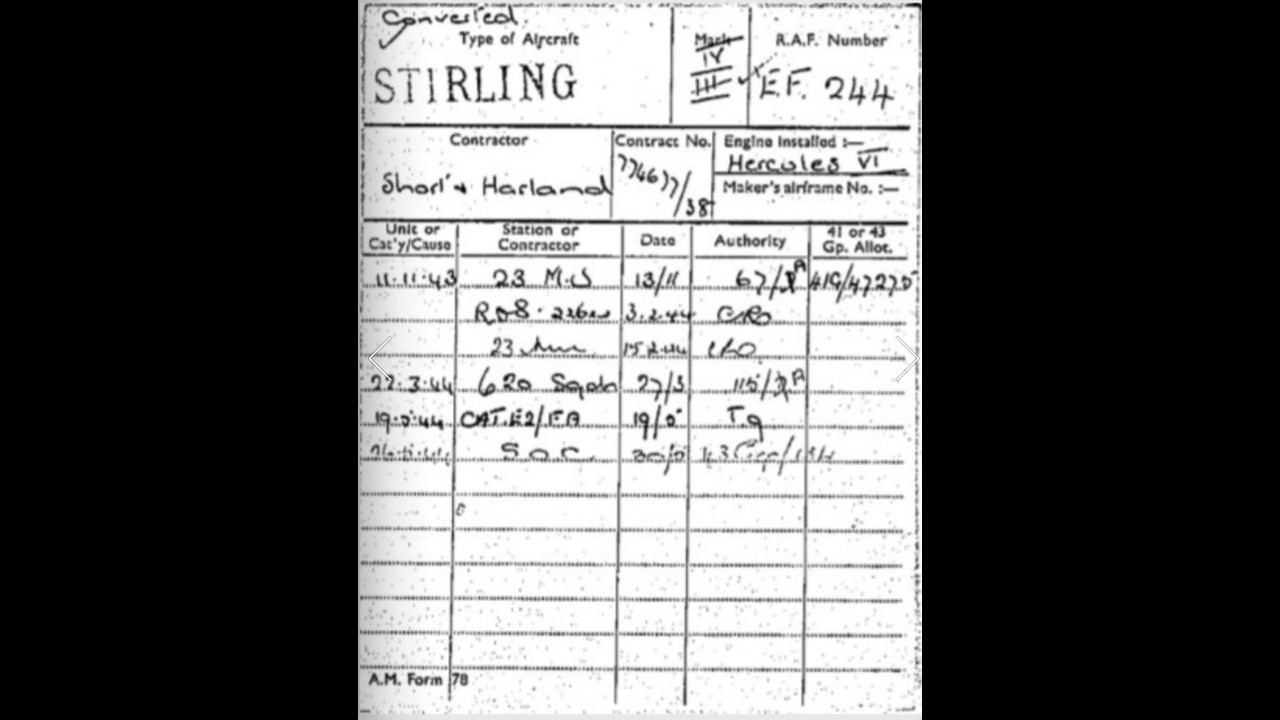 Converted.
Type of Aircraft
Mark
R.A.F. Number
STIRLING
IV
III
E.F. 244
Contractor
Contract No.
Engine Installed :—
Hercules VI
Short & Harland
774677/38
Maker's airframe No. :—
Unit or Cat'y/Cause
Station or Contractor
Date
Authority
41 or 43 Gp. Allot.
11.11.43 23 M.U 13/11 67/ A 41G/47270
ROS. 3.2.44 CRO
23 Mu 15.2.44
27.3.44 620 Sqdn 27/3 115/ A
19.5.44 CAT.E2/FB 19/5 T.9
S.O.C.
A.M. Form 78